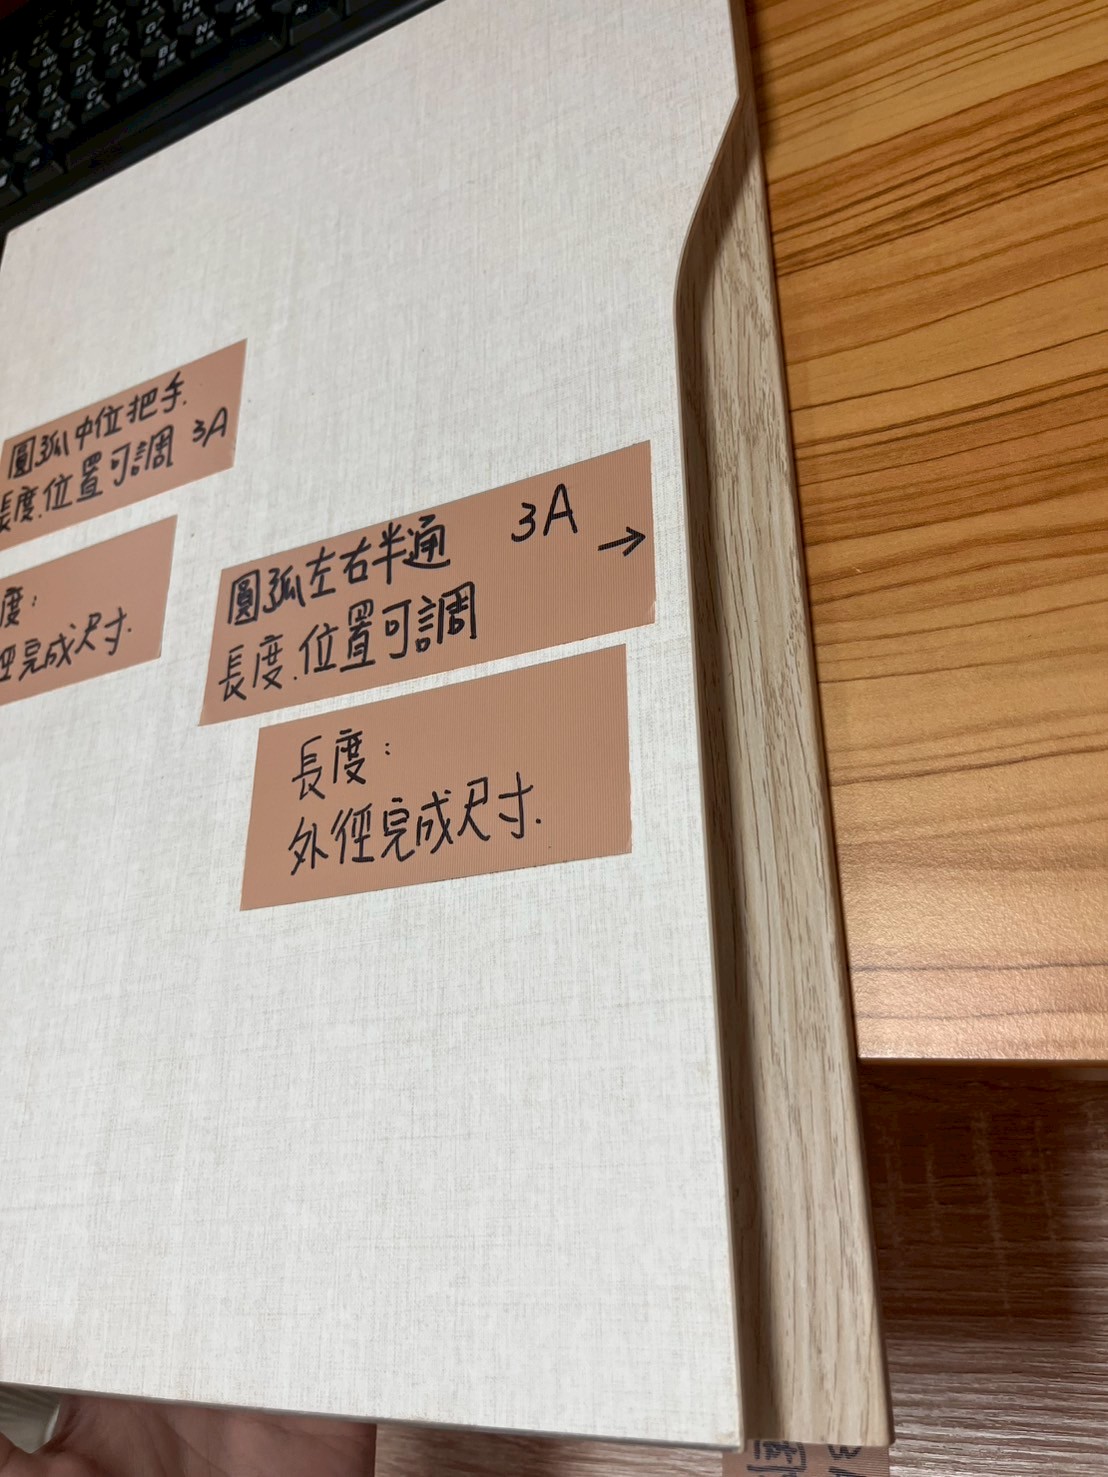 圓弧中位把手.
長度.位置可調 3A
度:
徑完成尺寸.
圓弧左右半通 3A →
長度.位置可調
長度:
外徑完成尺寸.